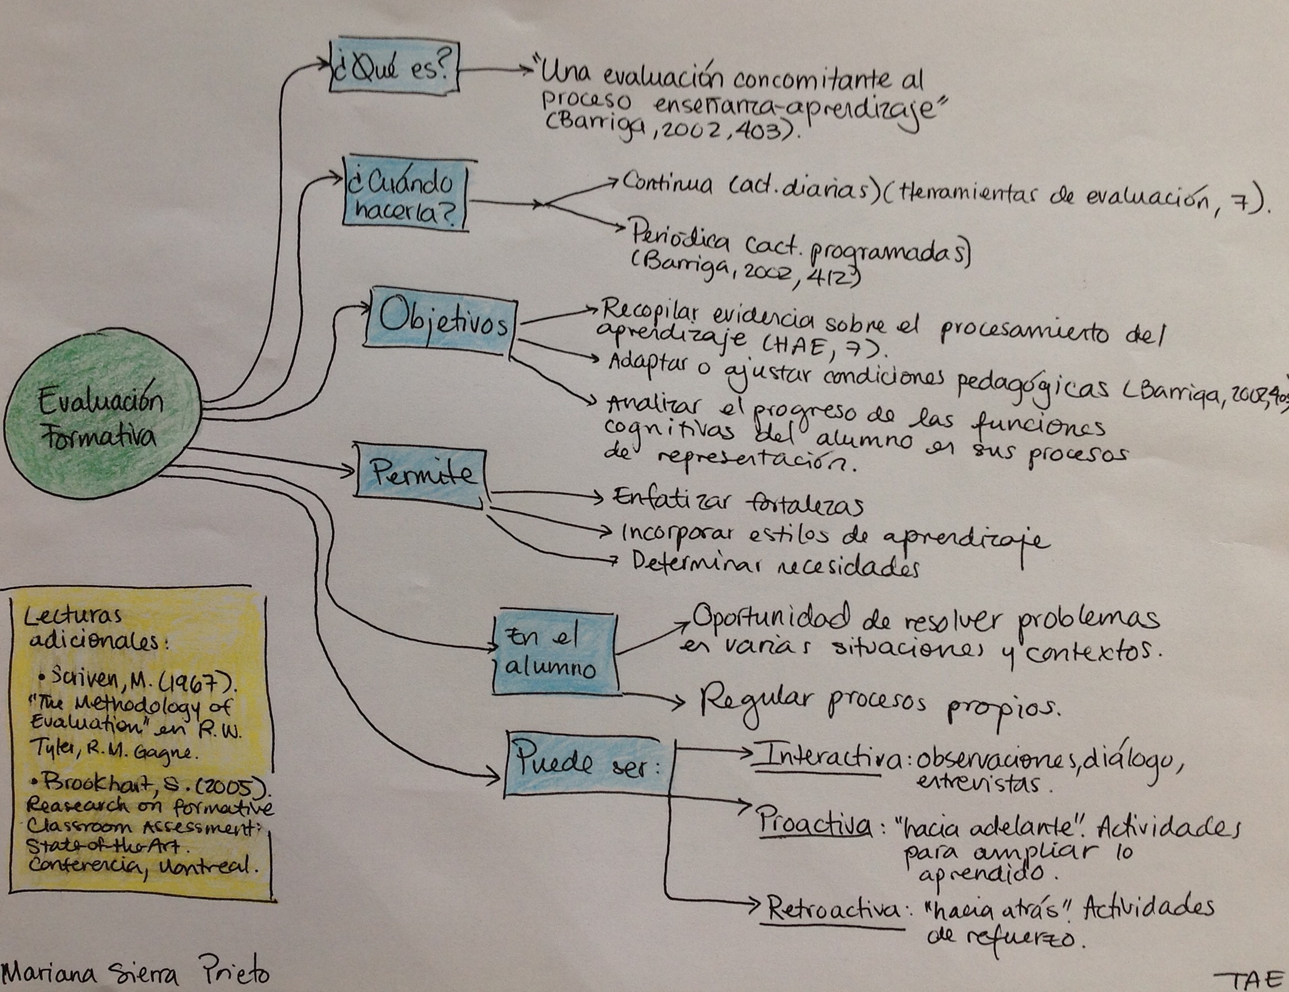 ¿Qué es?
"Una evaluación concomitante al
proceso enseñanza-aprendizaje"
(Barriga, 2002, 403).
¿Cuándo
hacerla?
Continua (act. diarias) (Herramientas de evaluación, 7).
Periódica (act. programadas)
(Barriga, 2002, 412)
Objetivos
Recopilar evidencia sobre el procesamiento del
aprendizaje (HAE, 7).
Adaptar o ajustar condiciones pedagógicas (Barriga, 2002,
Analizar el progreso de las funciones
cognitivas del alumno en sus procesos
de representación.
Evaluación
Formativa
Permite
Enfatizar fortalezas
Incorporar estilos de aprendizaje
Determinar necesidades
En el
alumno
Oportunidad de resolver problemas
en varias situaciones y contextos.
Regular procesos propios.
Puede ser:
Interactiva: observaciones, diálogo,
entrevistas.
Proactiva: "hacia adelante". Actividades
para ampliar lo
aprendido.
Retroactiva: "hacia atrás". Actividades
de refuerzo.
Lecturas
adicionales:
• Scriven, M. (1967).
"The Methodology of
Evaluation" en R.W.
Tyler, R.M. Gagne.
• Brookhart, S. (2005).
Reasearch on formative
Classroom Assessment:
State-of-the-Art.
Conferencia, Montreal.
Mariana Sierra Prieto
TAE